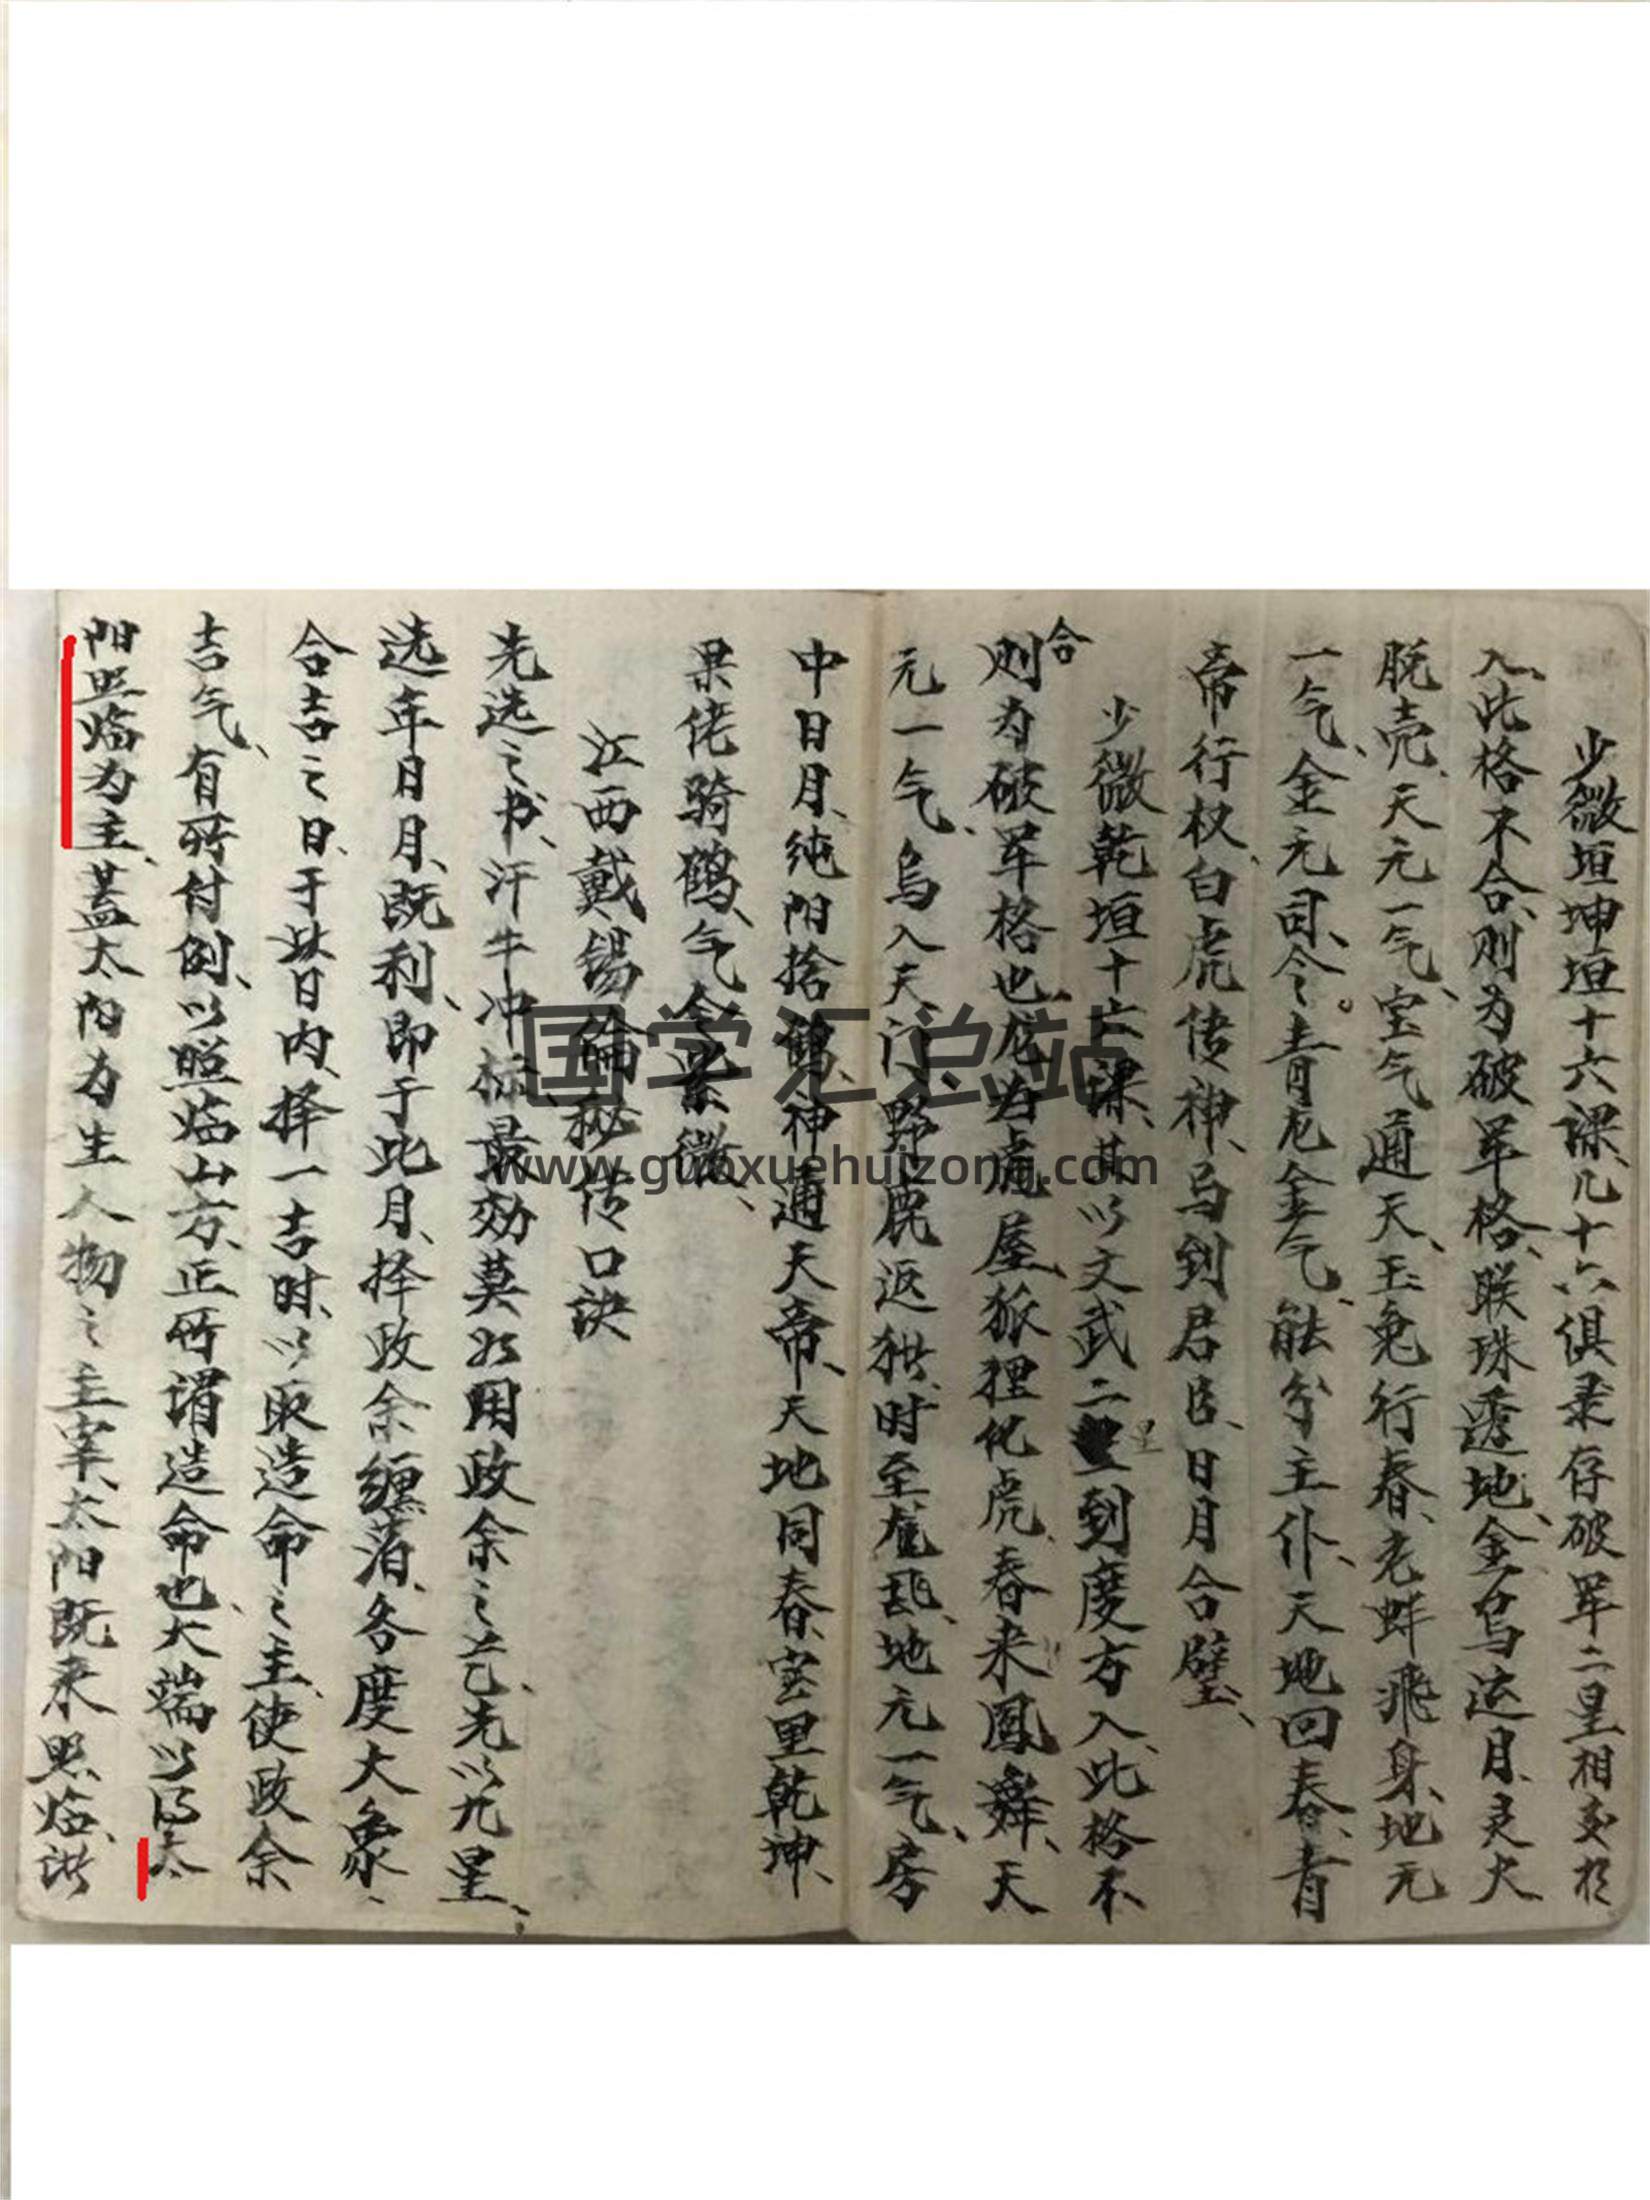 少微垣坤垣十六课、凡十六俱录存破军二星相交于
入、此格不合、则为破军格、联珠透地、金乌运月、灵犬
脱壳、天元一气、宝气通天、玉兔行春、老蚌飞身、地元
一气、金元司令、青龙金气、能分主仆、天地回春、青
帝行权、白虎传神、马到君臣、日月合璧、
少微乾垣十六课、其以文武二星到度方入、此格不
合
则为破军格也、龙为虎屋、狐狸化虎、春来凤舞、天
元一气、乌入天门、野鹿返 时至 地元一气、房
中日月、纯阳捨鹤、神通天帝、天地同春、宝里乾坤、
果佬骑鹤、气令紫微、
江西戴锡伦秘传口诀
先选之书、汗牛冲栋、最効莫如用政余之艺、先以九星、
选年月、月既利、即于此月、择政余缠落、各度大象、
合吉之日、于此日内、择一吉时、以取造命之主、使政余
吉气、有所付例、以照临山方、正所谓造命也、大端以得太
阳照临为主、盖太阳为生人物之主宰、太阳既来照临、
国学汇总站
www.guoxuehuizong.com